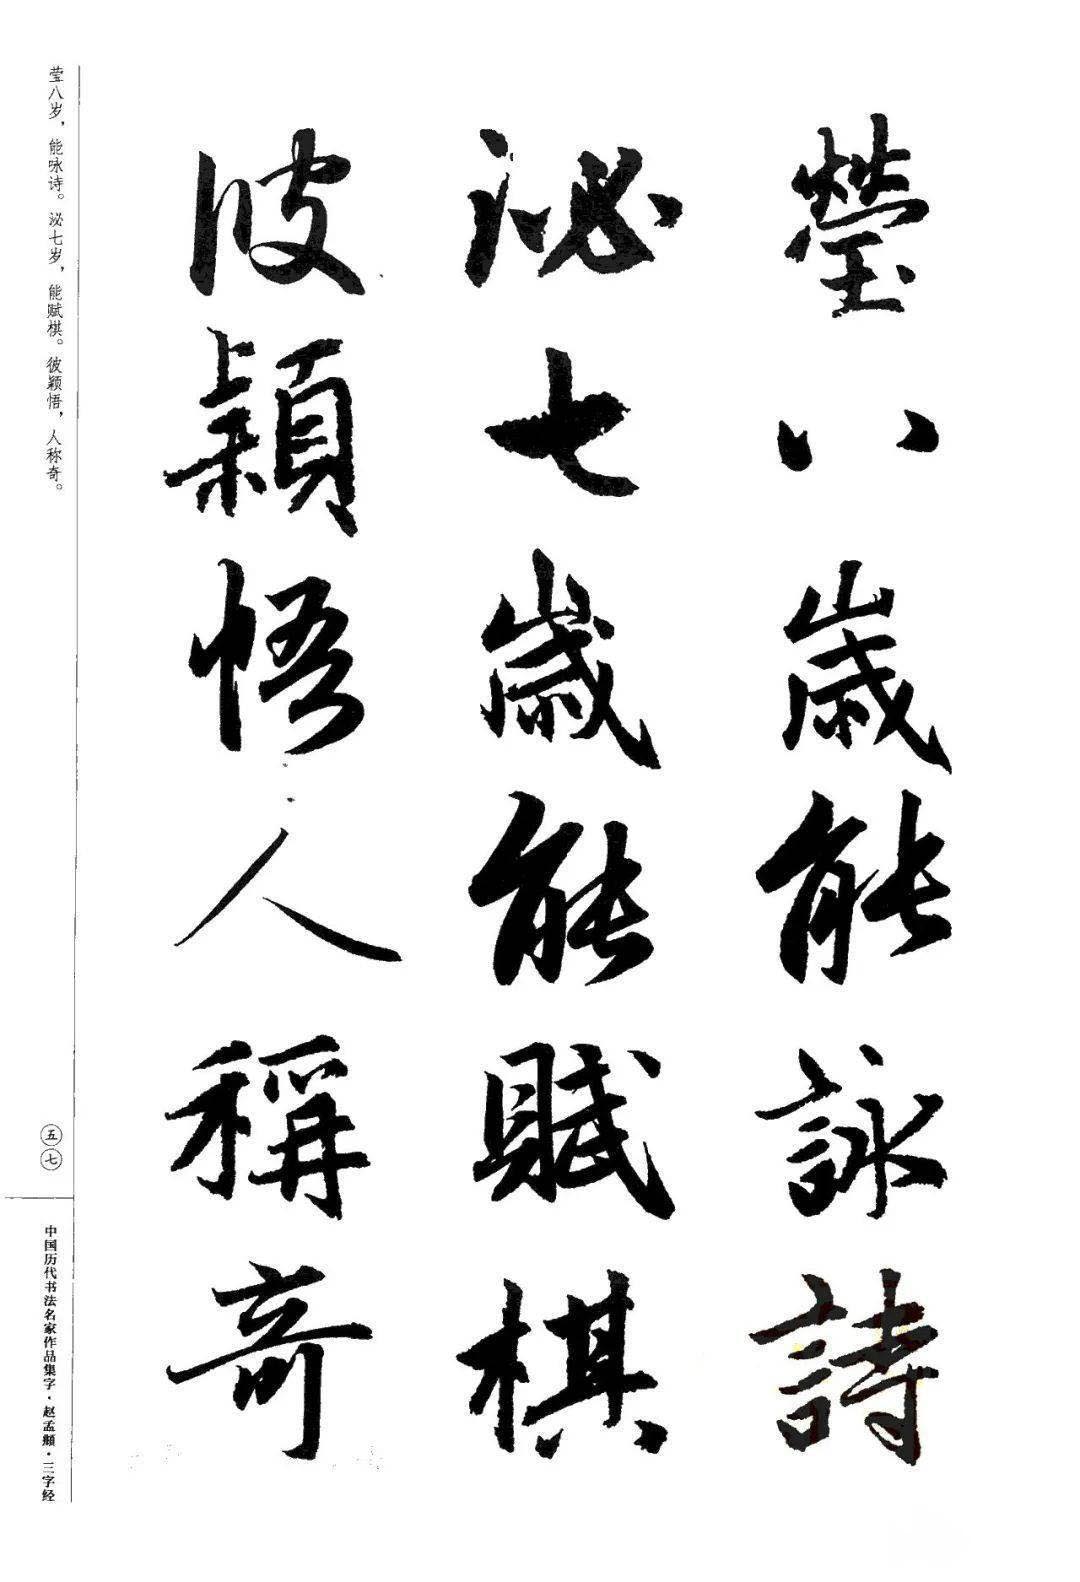 瑩八歲能詠詩
泌七歲能賦棋
彼穎悟人稱奇
莹八岁，能咏诗。泌七岁，能赋棋。彼颖悟，人称奇。
五七
中国历代书法名家作品集字·赵孟頫·三字经